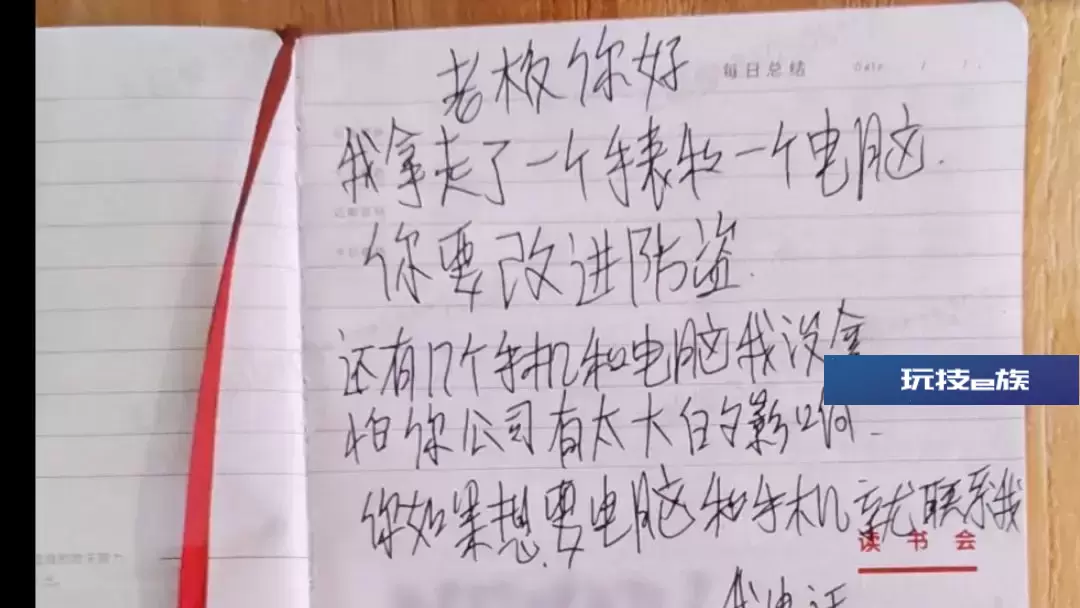 老板你好
每日总结 Date / / .
我拿走了一个手表和一个电脑.
你要改进防盗.
还有几个手机和电脑我没拿
玩技e族
怕你公司有太大的影响.
你如果想要电脑和手机就联系我
读书会
我电话